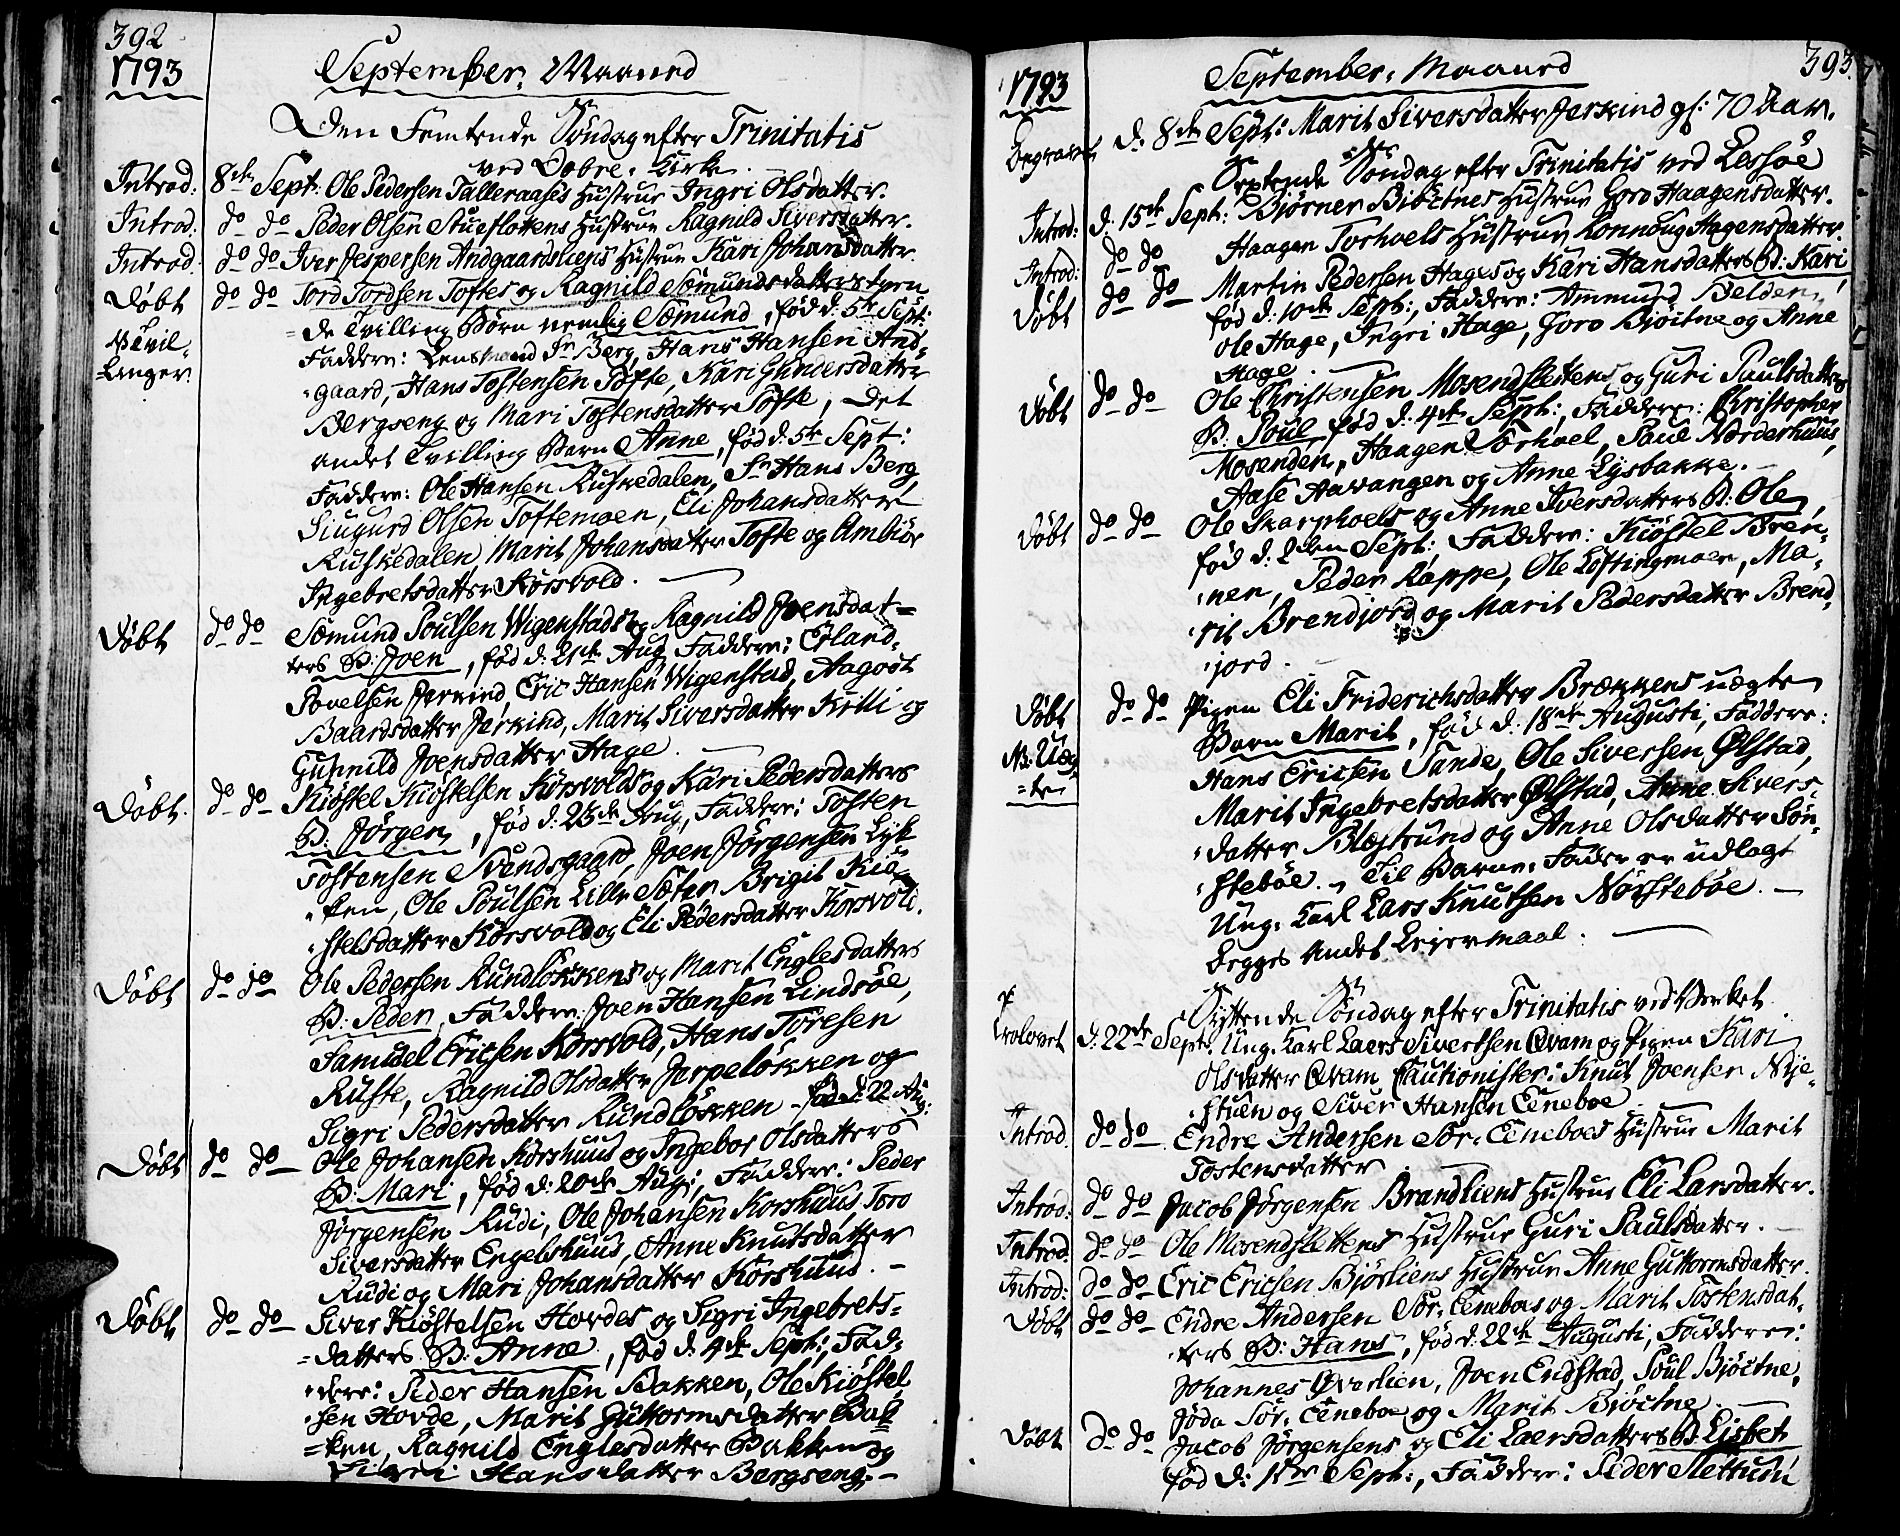 392
1793
September, Maaned
Den Femtende Søndag efter Trinitatis
ved Dovre, Kirke
Introd: 8de Sept: Ole Pedersen Talleraases Hustrue Ingri Olsdatter.
Introd: do do Peder Olsen Stueflottens Hustrue Ragnild Siversdatter.
Introd: do do Iver Jespersen Andgaardsliens Hustrue Kari Johansdatter
Døbt do do Tord Tordsen Toftes og Ragnild Sæmundsdatters tven
NB Tvil- = de Tvilling Børn nemlig Sæmund, fød d: 5te Sept:
-Linger. Faddere: Lensmand Sr Berg, Hans Hansen And-
gaard, Hans Tostensen Tofte, Kari Gundersdatter
Bergseng og Mari Tostensdatter Tofte, Det
andet Tvilling Barn Anne, fød d: 5te Sept:
Faddere: Ole Hansen Ruskedalen, Sr Hans Berg,
Siugurd Olsen Toftemoen, Eli Johansdatter
Ruskedalen, Marit Johansdatter Tofte og Ambiør
Ingebretsdatter Korsvold.
Døbt do do Sæmund Poulsen Wigenstads og Ragnild Joensdat=
ters B: Joen, fød d: 21de Aug Faddere: Erland
Povelsen Jerkind, Eric Hansen Wigenstad, Aagodt
Baardsdatter Jerkind, Marit Siversdatter Killi og
Gunnild Joensdatter Hage.
Døbt. do do Kiøstel Kiøstelsen Korsvolds og Kari Pedersdatters
B: Jørgen, fød d: 23de Aug, Faddere: Tosten
Tostensen Svendsgaard, Joen Jørgensen Lyk-
ken, Ole Poulsen Lille Sæter Brigit Kiø-
stelsdatter Korsvold og Eli Pedersdatter Korsvold.
Døbt do do Ole Pedersen Rundløkkens og Marit Englesdatters
B: Peder, Faddere: Joen Hansen Lindsøe,
Samuel Ericsen Korsvold, Hans Toresen
Ruste, Ragnild Olsdatter Jerpeløkken og
Sigri Pedersdatter Rundløkken fød d: 22 Aug:
Døbt do do Ole Johansen Korshuus og Ingebor Olsdatters
B: Mari, fød d: 20de Aug:, Faddere: Peder
Jørgensen Rudi, Ole Johansen Korshuus, Toro
Siversdatter Engelshuus, Anne Knutsdatter
Rudi og Mari Johansdatter Korshuus.
Døbt do do Siver Kiøstelsen Hovdes og Sigri Ingebrets-
=datters B: Anne, fød d: 4de Sept:, Fad-
dere: Peder Hansen Bakken, Ole Kiøstel
sen Hovde, Marit Guttormsdatter Bak
=ken, Ragnild Englesdatter Bakken og
Sigri Hansdatter Bergseng.
393.
1793
September, Maaned
Begravet d: 8de Sept: Marit Siversdatter Jerkind gl: 70 Aar.
Sextende Søndag efter Trinitatis ved Lessøe
Introd: d: 15de Sept: Bjørner Biøctnes Hustrue Goro Haagensdatter.
Introd: do do Haagen Torhoels Hustrue Ronnoug Hagensdatter.
Døbt do do Martin Pedersen Hages og Kari Hansdatters B: Kari
fød d: 10de Sept:, Faddere: Ammund Belden,
Ole Hage, Ingri Hage, Goro Bjøctne og Anne
Hage.
Døbt do do Ole Christensen Mosendslettens og Guri Paulsdatters
B: Poul, fød d: 4de Sept:, Faddere: Christopher
Mosenden, Haagen Torhoel, Paul Norderhuus,
Aase Aavangen og Anne Lysbakke.
Døbt do do Ole Skarphoels og Anne Iversdatters B: Ole,
fød d: 2den Sept:, Faddere: Kiøstel Bren-
nen, Peder Kappe, Ole Loftingmoen, Ma-
rit Brendjord og Marit Pedersdatter Brend-
jord.
Døbt do do Pigen Eli Friderichsdatter Brækkens uægte
NB: Uæg- Barn Marit, fød d: 18de Augusti, Faddere:
=te Hans Ericsen Tande, Ole Siversen Ølstad,
Marit Ingebretsdatter Ølstad, Anne Sivers-
datter Blæstrund og Anne Olsdatter Nør-
stebøe. Til Barne, Fader er udlagt
Ung: Karl Lars Knutsen Nørstebøe.
begges Andet Leiermaal.
Syttende Søndag efter Trinitatis ved Verket
Trolovet d: 22de Sept: Ung: Karl Laers Sivertsen Qvam og Pigen Kari
Olsdatter Qvam, Cautionister: Knut Joensen Nye-
stuen og Siver Hansen Eeneboe
Introd. do do Endre Andersen Sør, Eeneboes Hustrue Marit
Tostensdatter
Introd: do do Jacob Jørgensen Brandliens Hustrue Eli Larsdatter.
Introd: do do Ole Mosendslettens Hustrue Guri Paulsdatter.
Introd: do do Eric Ericsen Bjørliens Hustrue Anne Guttormsdatter.
Døbt do do Endre Andersen Sør, Eeneboes og Marit Tostensdat-
ters B: Hans, fød d: 22de Augusti, Faddere:
Johannes Øverlien, Joen Endstad, Poul Bjøctne,
Jøda Sør, Eeneboe og Marit Bjøctne.
Døbt do do Jacob Jørgensens og Eli Laersdatters B: Lisbet
fød d: 1ste Sept:, Faddere: Peder Slettusu